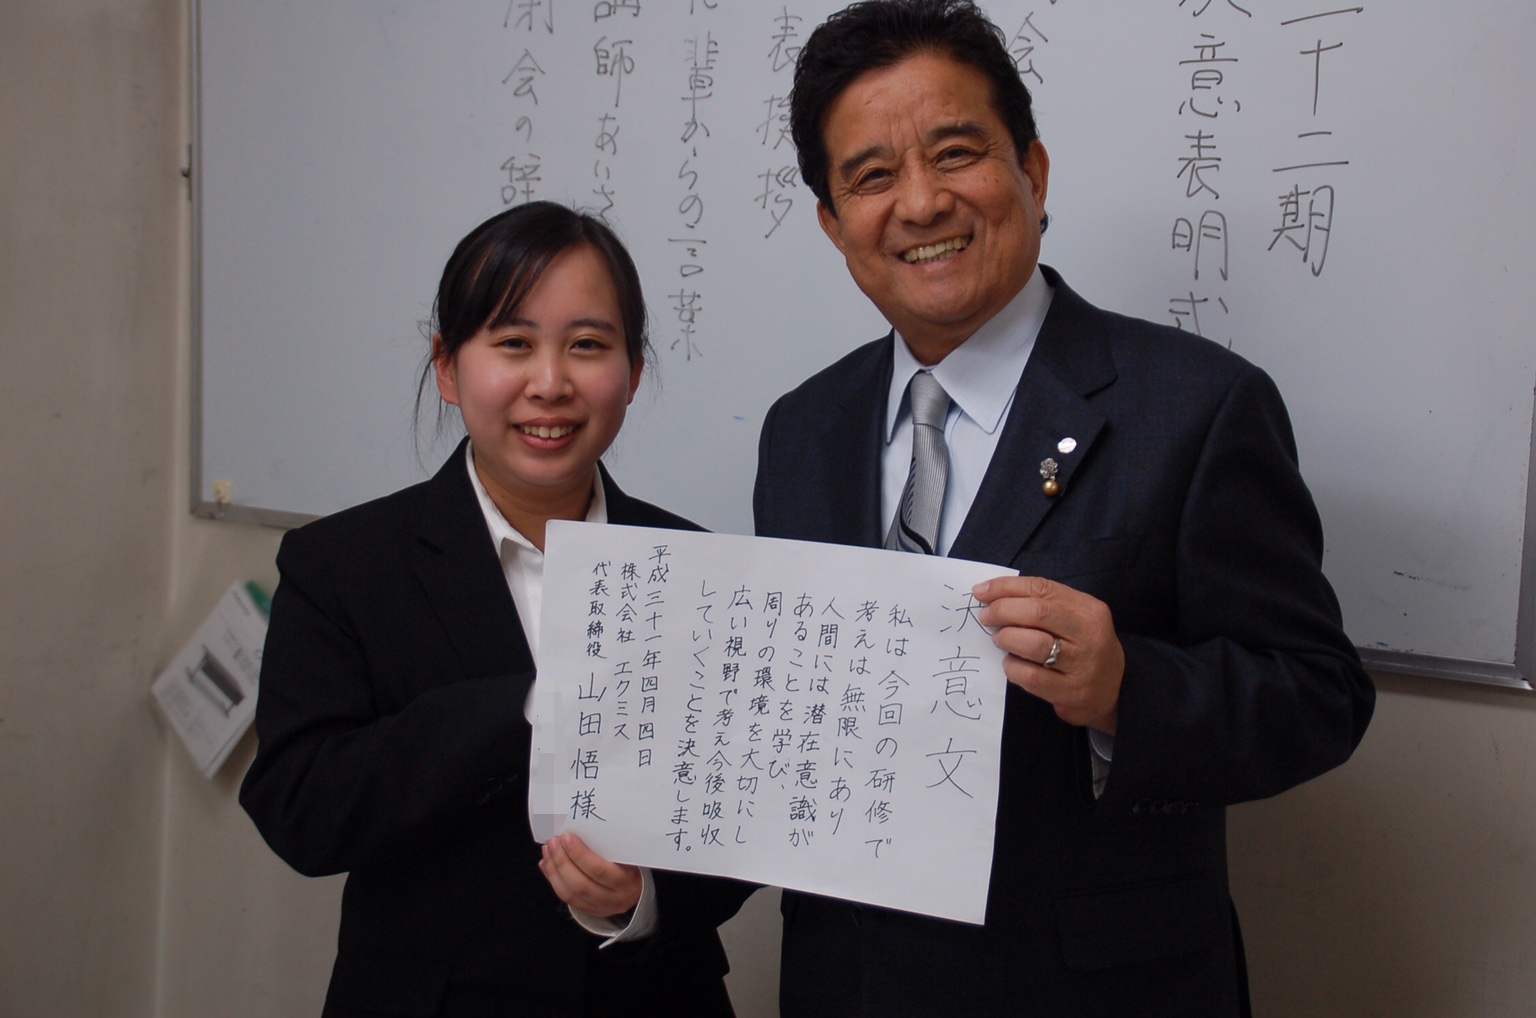 二十二期
決意表明式
会
表挨拶
輩からの言葉
講師あいさ
閉会の辞
決意文
私は今回の研修で
考えは無限にあり
人間には潜在意識が
あることを学び、
周りの環境を大切にし
広い視野で考え今後吸収
していくことを決意します。
平成三十一年四月四日
株式会社 エクミス
代表取締役 山田悟様